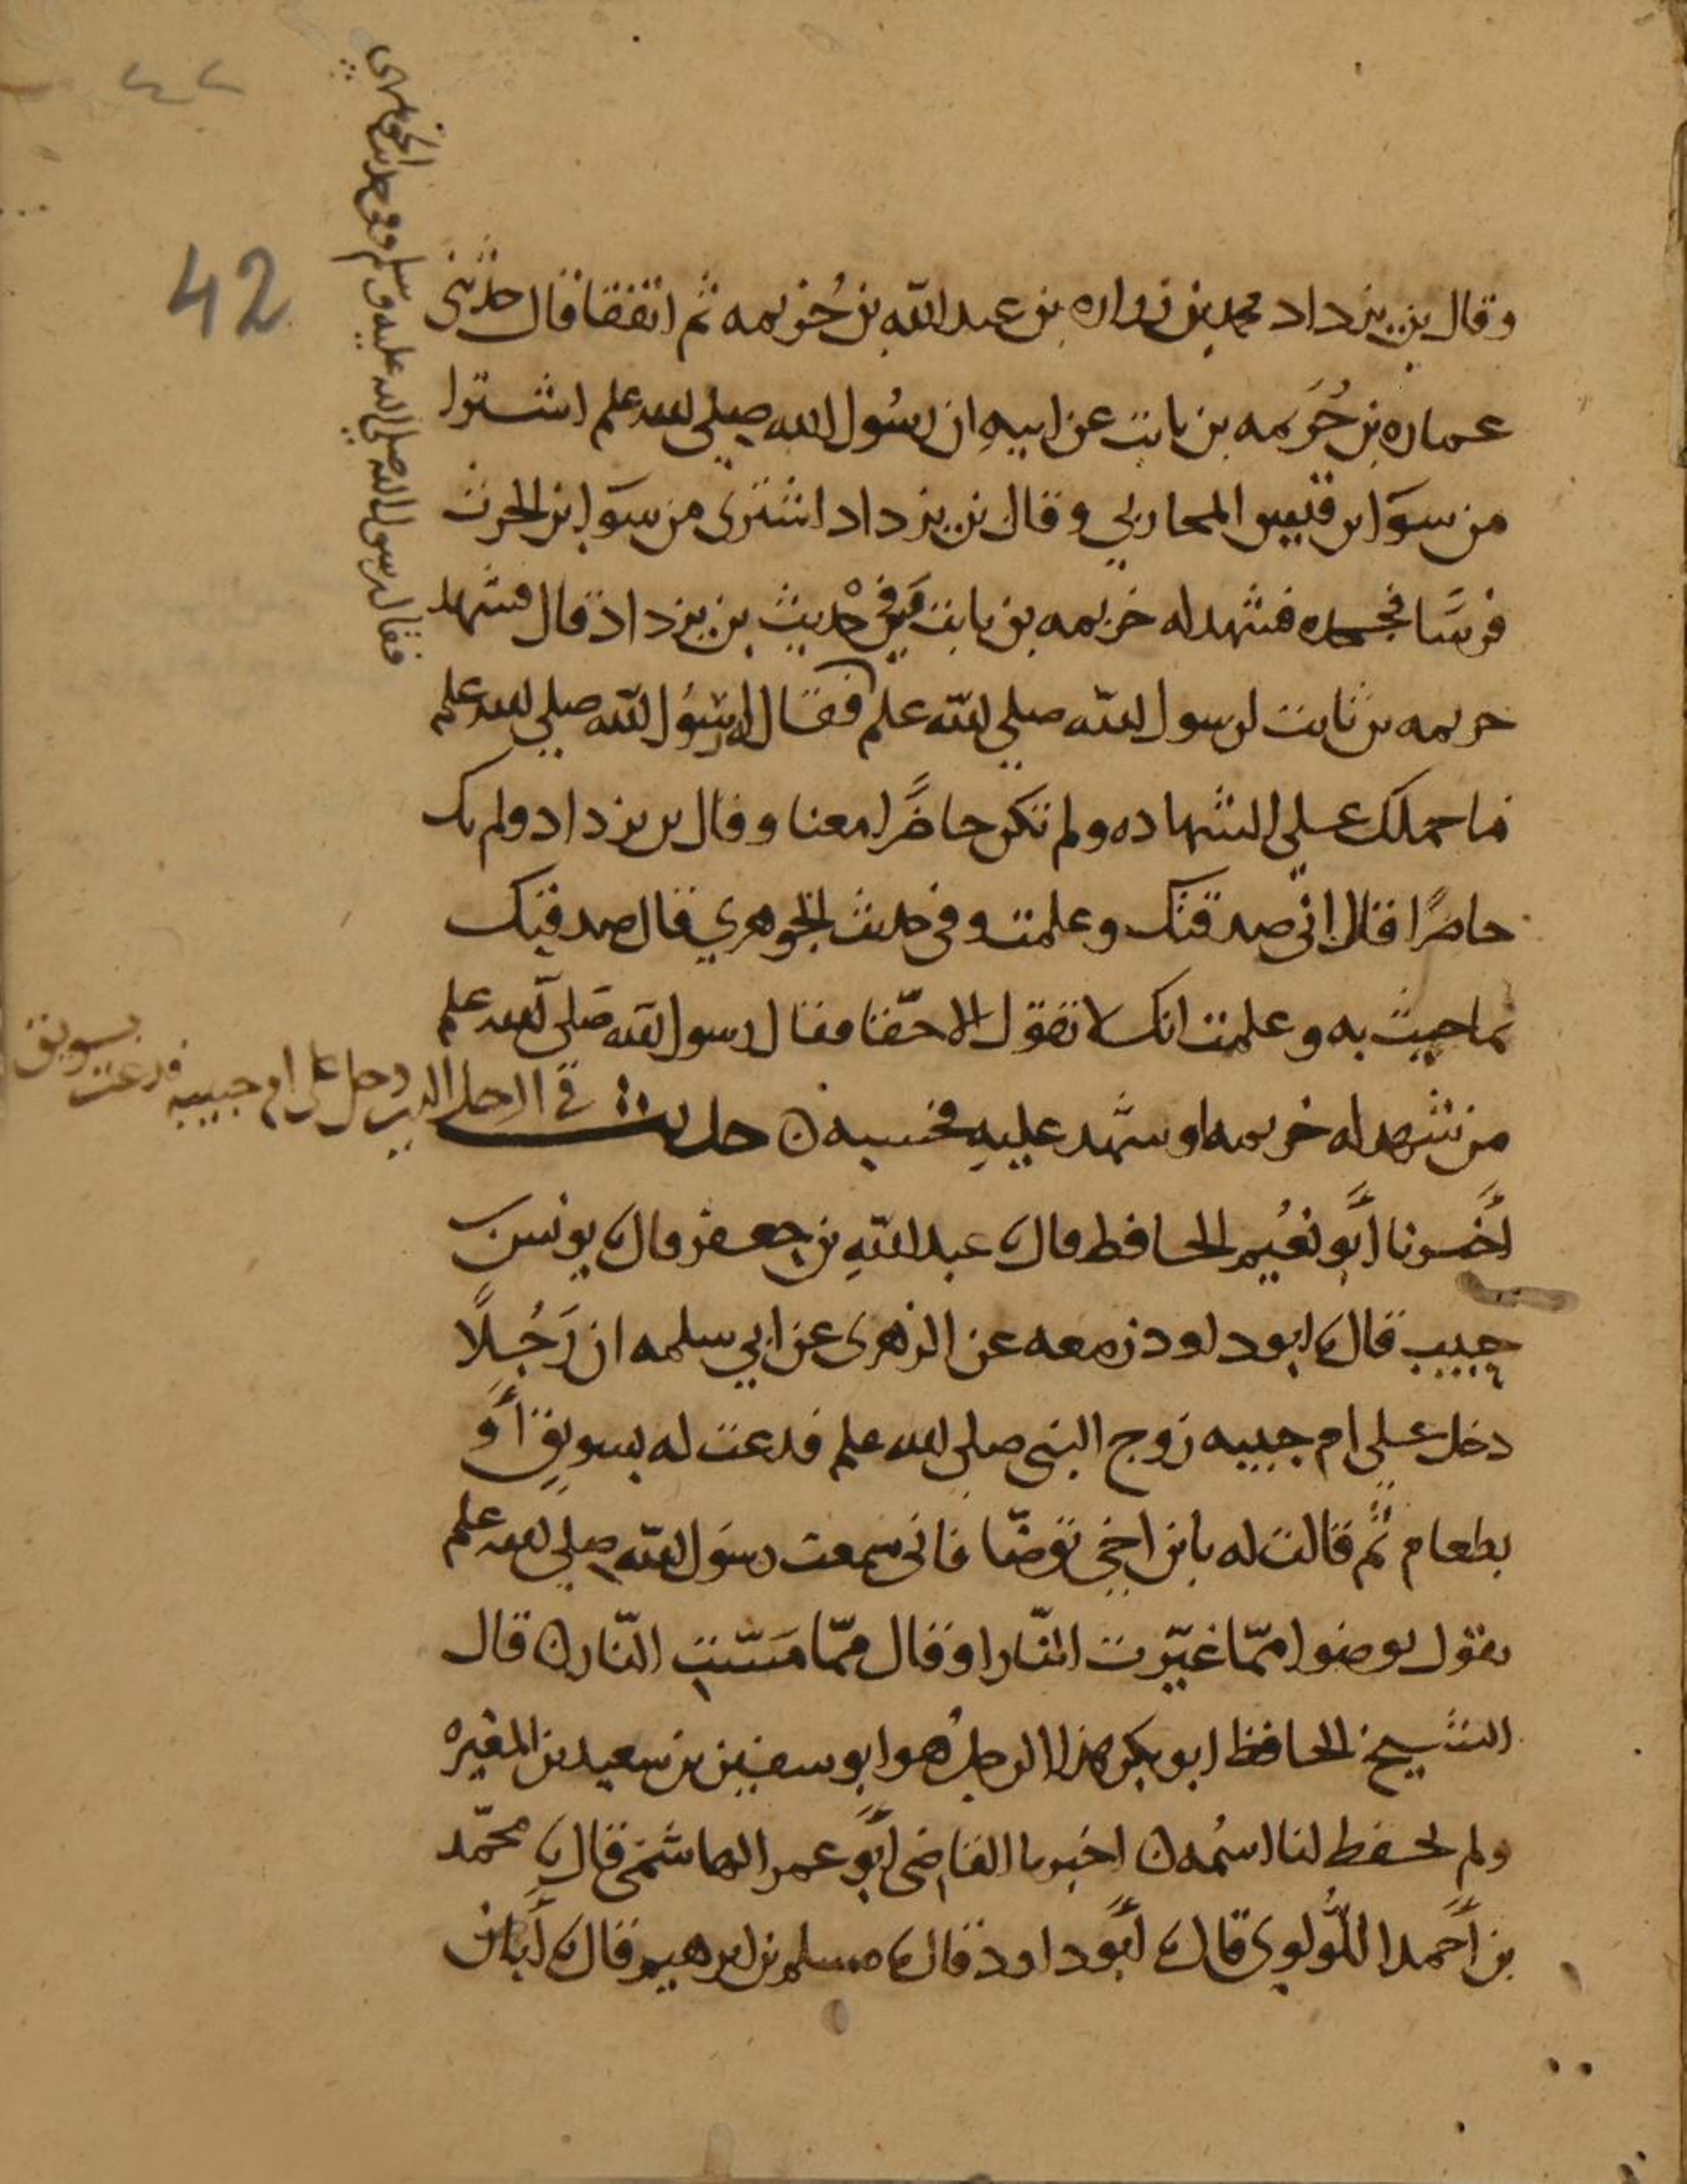 وقال بن يزداد محمد بن زراره بن عبد الله بن خُزيمه ثم اتفقا قال حدثني
عماره بن خُزَيمه بن ثابت عن ابيهِ ان رسُول الله صلي الله علم اشترا
من سوَا بن قيس المحاربي وقال بن يزداد اشترى من سوَا بن الحرث
فرسًا فجحده فشهد له خزيمه بن ثابت وفي حديث بن يزداد قال فشهد
خزيمه بن ثابت لرسول الله صلي الله علم فقال له رسُول الله صلي الله علم
ما حملك علي الشهاده ولم تكن حاضرًا معنا وقال بن يزداد ولم تك
حاضرًا فقال انّي صدقتك وعلمت وفي حديث الجوهري قال صدقتك
بما جيت به وعلمت انك لا تقول الا حقّا فقال رسول الله صَلى الله علم
من شهد له خزيمه او شهد عليهِ فحسبه ن حديث في الرجل الذي دخل على ام حبيبه فدعت
بسويق
أَخبرنا أَبو نعُيم الحافظ قال نا عبد اللهِ بن جعفر قال نا يونس بن
حبيب قال نا ابو داود زمعه عن الزهري عن ابي سلمه ان رَجُلًا
دخل علي ام حبيبه زوج النبي صلي الله علم فدعت له بسويقٍ أَو
بطعام ثم قالت له يابن اخي توضّا فاني سمعت رسَول الله صلي الله علم
يقول توضوا ممّا غيّرت النّار او قال ممّا مَسّتِ النّار ن قال
الشيخ الحافظ ابو بكر هذا الرجلُ هو ابو سفين بن سعيد بن المغيره
ولم يحفظ لنا اسُمه ن اخبرنا القاضي أَبو عمر الهاشمي قال نا محمّد
بن أَحمد اللُّولوي قال نا أَبو داود قال نا مسلم بن ابرهيم قال نا أَبان
فقال رسول الله صلى الله عليه وسلم وفي حديث الجوهري
42